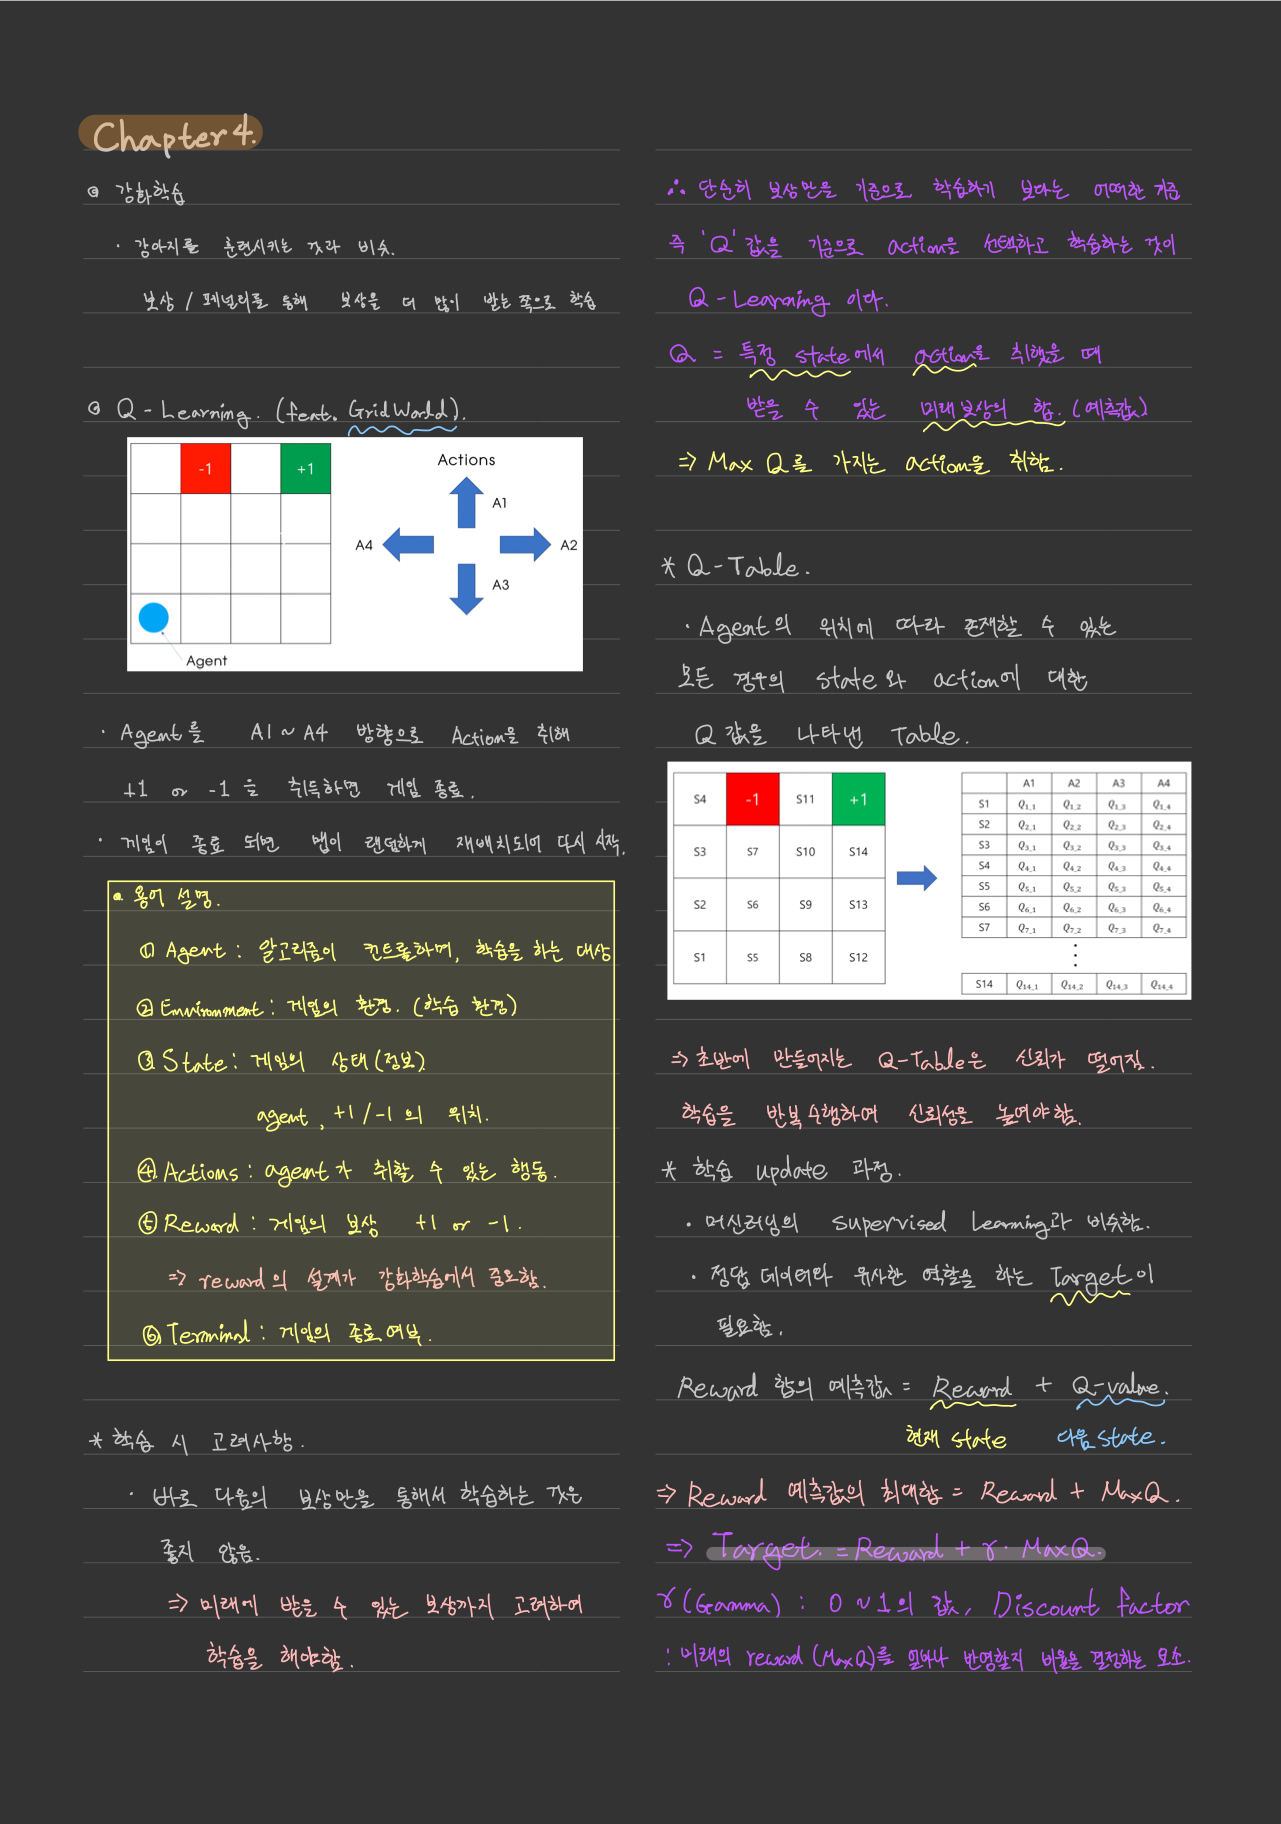 Chapter 4.
◎ 강화학습
· 강아지를 훈련시키는 것과 비슷.
보상 / 페널티를 통해 보상을 더 많이 받는 쪽으로 학습
◎ Q - Learning. (feat. GridWorld).
-1 +1
Actions
A1
A4 A2
A3
Agent
· Agent를 A1 ~ A4 방향으로 Action을 취해
+1 or -1 을 취득하면 게임 종료.
· 게임이 종료 되면 맵이 랜덤하게 재배치되어 다시 시작.
용어 설명.
① Agent : 알고리즘이 컨트롤하며, 학습을 하는 대상
② Environment : 게임의 환경. (학습 환경)
③ State : 게임의 상태(정보)
agent, +1 / -1 의 위치.
④ Actions : agent가 취할 수 있는 행동.
⑤ Reward : 게임의 보상 +1 or -1.
=> reward의 설계가 강화학습에서 중요함.
⑥ Terminal : 게임의 종료여부.
* 학습 시 고려사항.
· 바로 다음의 보상만을 통해서 학습하는 것은
좋지 않음.
=> 미래에 받을 수 있는 보상까지 고려하여
학습을 해야함.
∴ 단순히 보상만을 기준으로 학습하기 보다는 어떠한 기준
즉 'Q' 값을 기준으로 action을 선택하고 학습하는 것이
Q - Learning 이다.
Q = 특정 state에서 action을 취했을 때
받을 수 있는 미래보상의 합. (예측값)
=> Max Q를 가지는 action을 취함.
* Q - Table.
· Agent의 위치에 따라 존재할 수 있는
모든 경우의 state와 action에 대한
Q 값을 나타낸 Table.
S4 -1 S11 +1
S3 S7 S10 S14
S2 S6 S9 S13
S1 S5 S8 S12
A1 A2 A3 A4
S1 Q1_1 Q1_2 Q1_3 Q1_4
S2 Q2_1 Q2_2 Q2_3 Q2_4
S3 Q3_1 Q3_2 Q3_3 Q3_4
S4 Q4_1 Q4_2 Q4_3 Q4_4
S5 Q5_1 Q5_2 Q5_3 Q5_4
S6 Q6_1 Q6_2 Q6_3 Q6_4
S7 Q7_1 Q7_2 Q7_3 Q7_4
⋮
S14 Q14_1 Q14_2 Q14_3 Q14_4
=> 초반에 만들어지는 Q-Table은 신뢰가 떨어짐.
학습을 반복수행하여 신뢰성을 높여야함.
* 학습 update 과정.
· 머신러닝의 supervised learning과 비슷함.
· 정답 데이터와 유사한 역할을 하는 Target이
필요함.
Reward 합의 예측값 = Reward + Q-value.
현재 state 다음 state.
=> Reward 예측값의 최대합 = Reward + MaxQ.
=> Target. = Reward + r · MaxQ.
r (Gamma) : 0 ~ 1의 값, Discount factor
: 미래의 reward (MaxQ)를 얼마나 반영할지 비율을 결정하는 요소.